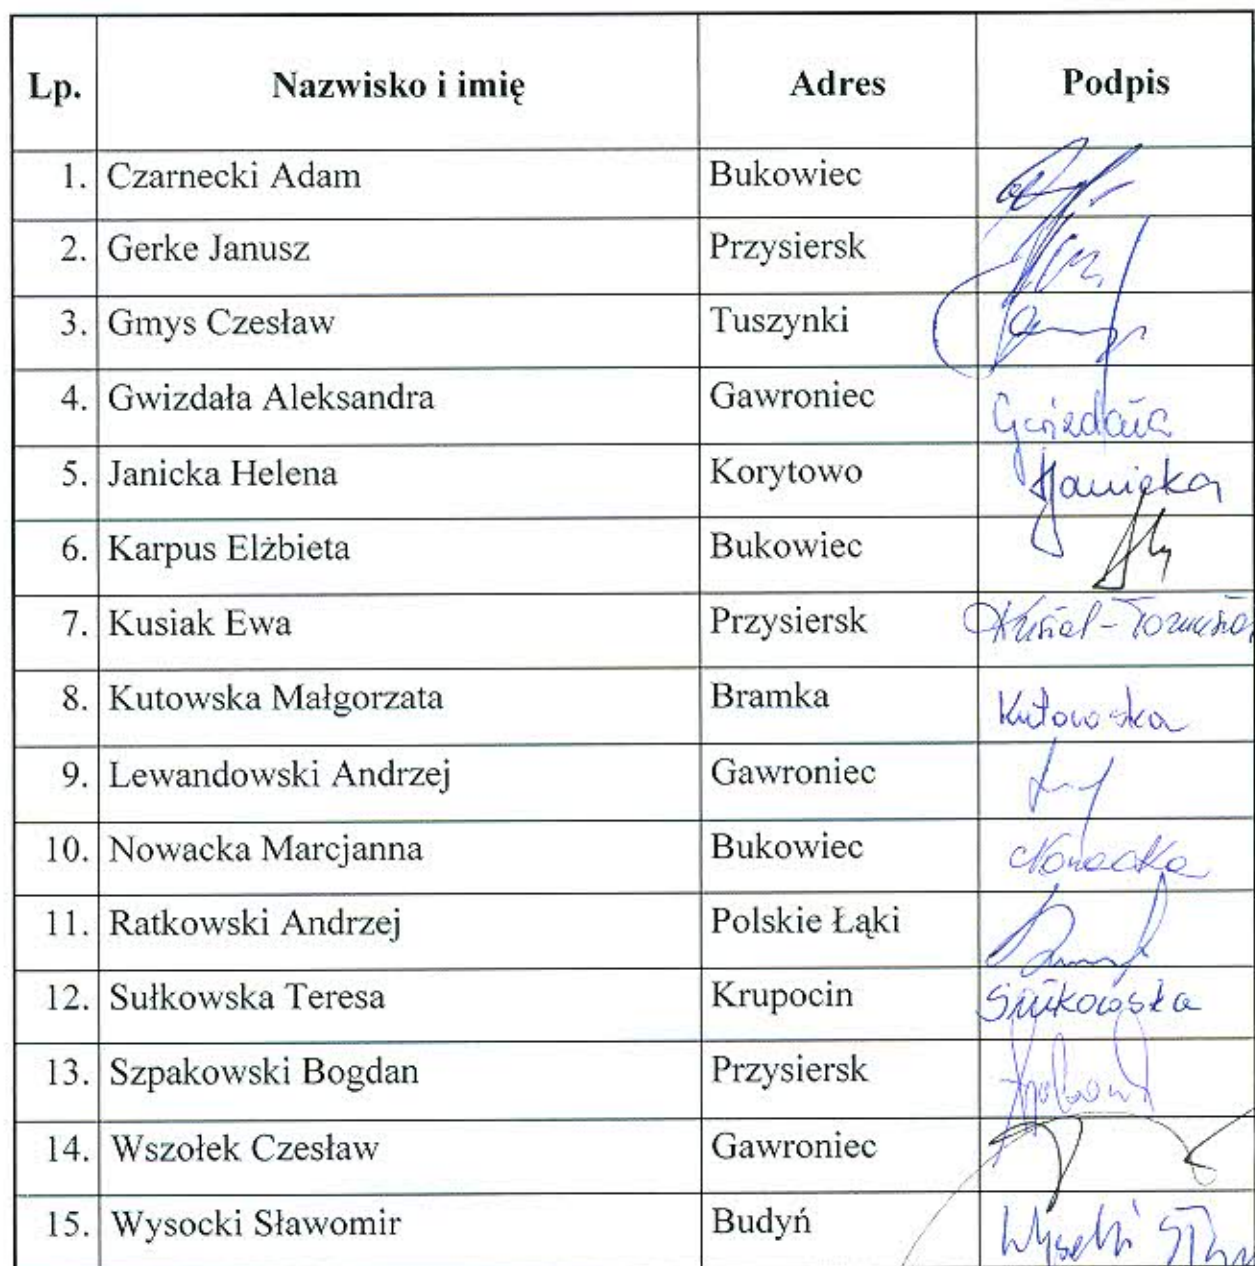 Lp. Nazwisko i imię Adres Podpis
1. Czarnecki Adam Bukowiec
2. Gerke Janusz Przysiersk
3. Gmys Czesław Tuszynki
4. Gwizdała Aleksandra Gawroniec Gwizdała
5. Janicka Helena Korytowo HJanicka
6. Karpus Elżbieta Bukowiec
7. Kusiak Ewa Przysiersk
8. Kutowska Małgorzata Bramka Kutowska
9. Lewandowski Andrzej Gawroniec
10. Nowacka Marcjanna Bukowiec Nowacka
11. Ratkowski Andrzej Polskie Łąki
12. Sułkowska Teresa Krupocin Sułkowska
13. Szpakowski Bogdan Przysiersk
14. Wszołek Czesław Gawroniec
15. Wysocki Sławomir Budyń Wysocki